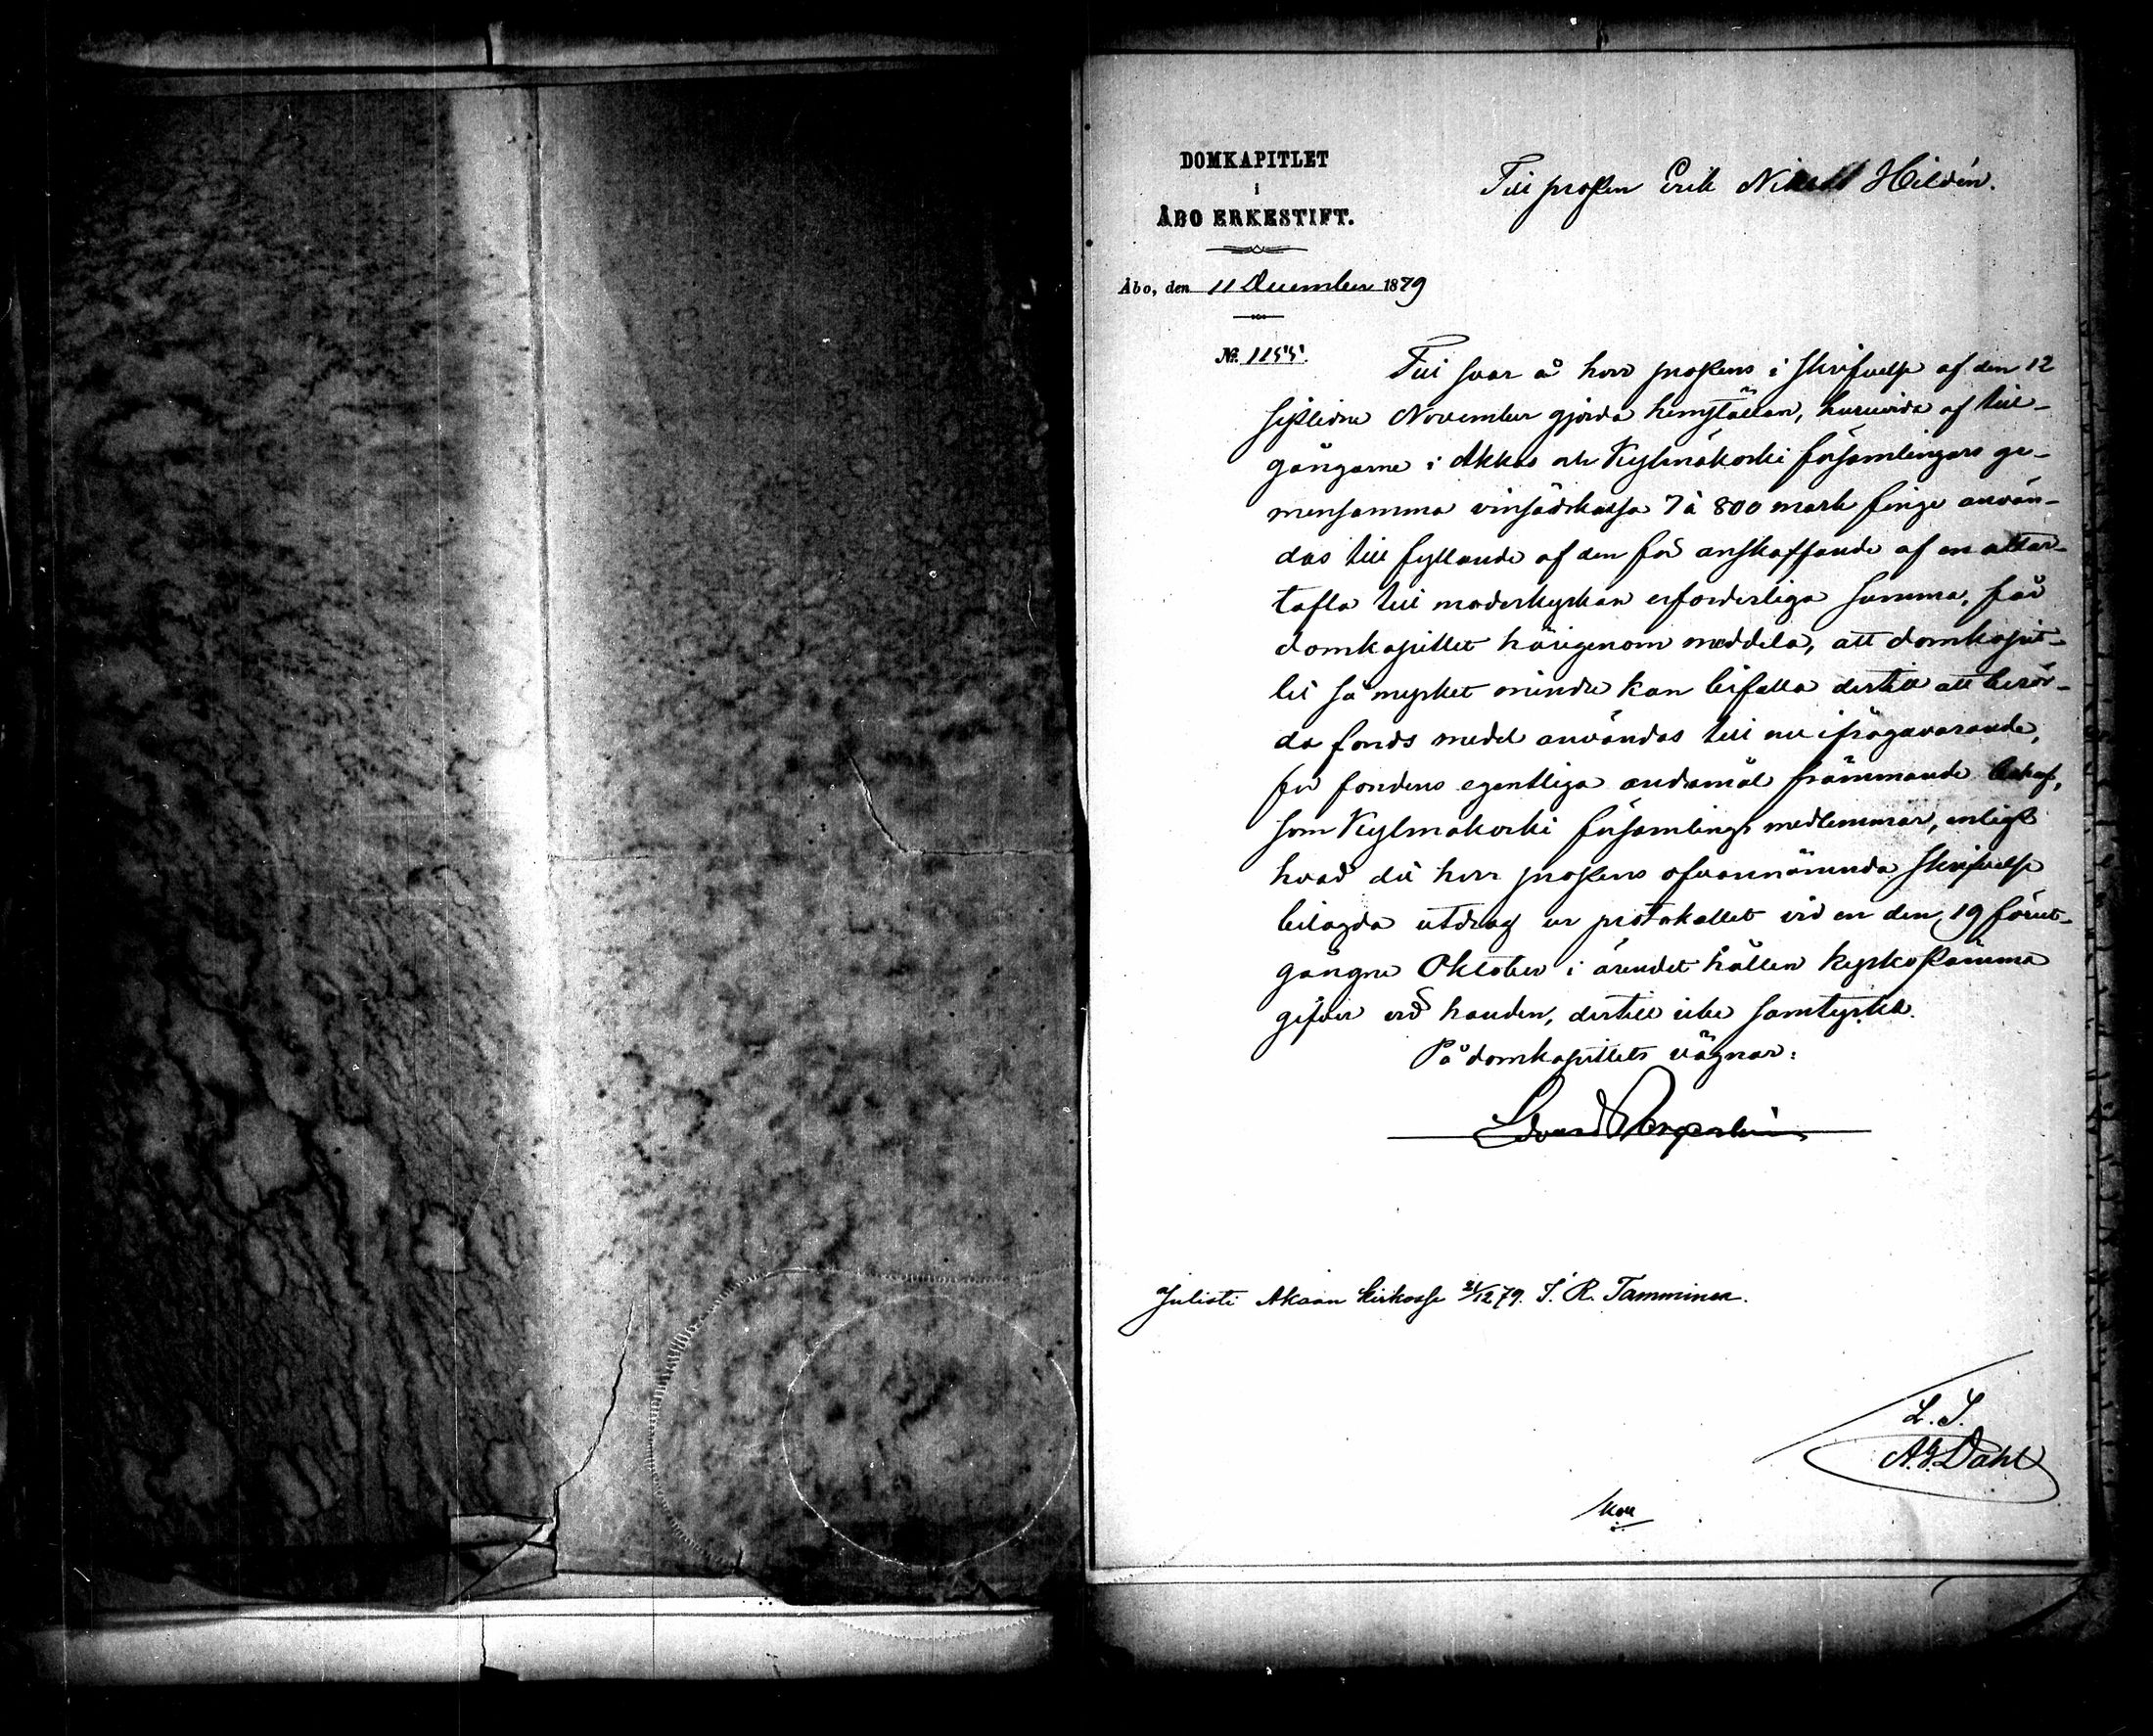 DOMKAPITLET
i
ÅBO ERKESTIFT.
Till prosten Erik Hildén.
Åbo, den 11 December 1879
No. 1155.
Till svar å herr prostens i skrifvelse af den 12
sistlidne November gjorda hemställan, huruvida af till-
gångarne i Akkas och Kylmäkoski församlingars ge-
mensamma vinsädskassa 7 à 800 mark finge använ-
das till fyllande af den för anskaffande af en altar-
tafla till moderkyrkan erforderliga summa, får
domkapitlet härigenom meddela, att domkapit-
let så mycket mindre kan bifalla dertill att berör-
da fonds medel användas till nu ifrågavarande,
för fondens egentliga ändamål främmande behof,
som Kylmäkoski församlings medlemmar, enligt
hvad det herr prostens ofvannämnda skrifvelse
bilagda utdrag ur protokollet vid en den 19 förut-
gångne Oktober i ärendet hållen kyrkostämma
gifver vid handen, dertill icke samtyckt.
På domkapitlets vägnar:
Julisti Akaan kirkossa 21/12 79. J. R. Tamminen.
L. S.
A. G. Dahl